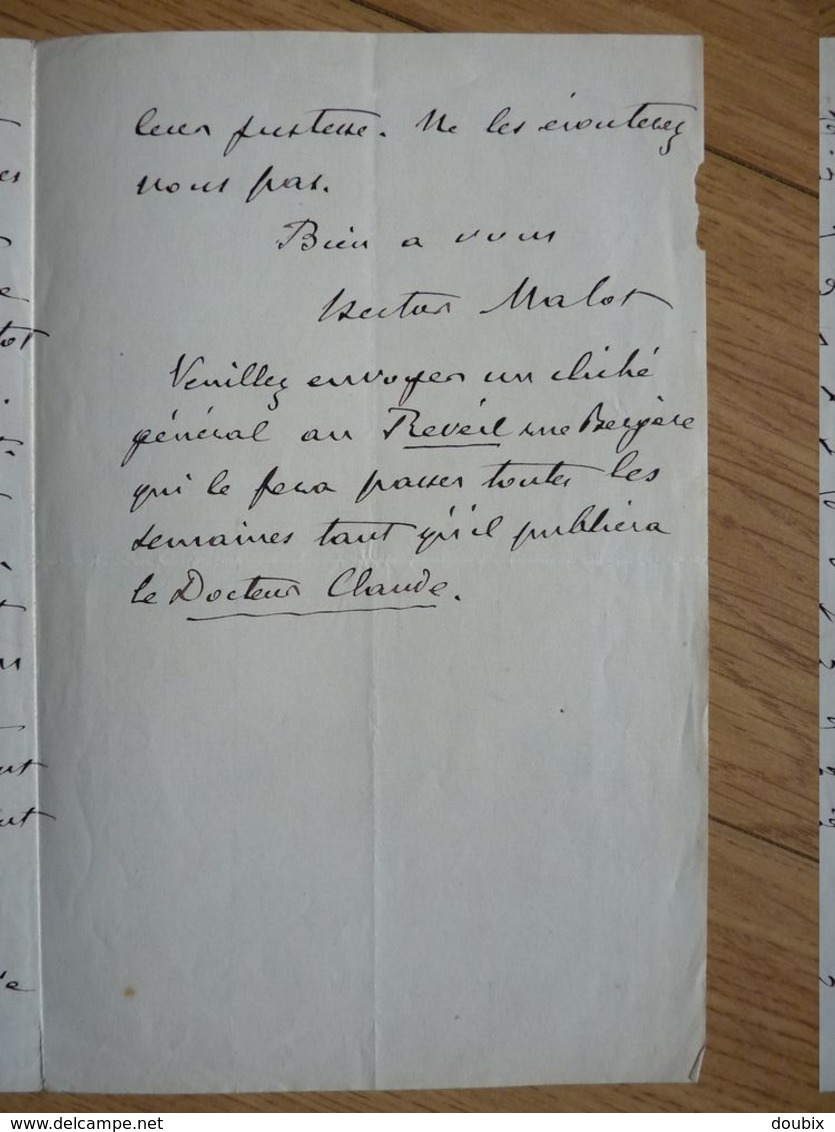 leur justesse. Ne les écouterez
vous pas.
Bien a vous
Hector Malot
Veuillez envoyer un cliché
général au Reveil rue Bergère
qui le fera passer toutes les
semaines tant qu'il publiera
le Docteur Claude.
delcampe.net
doubix